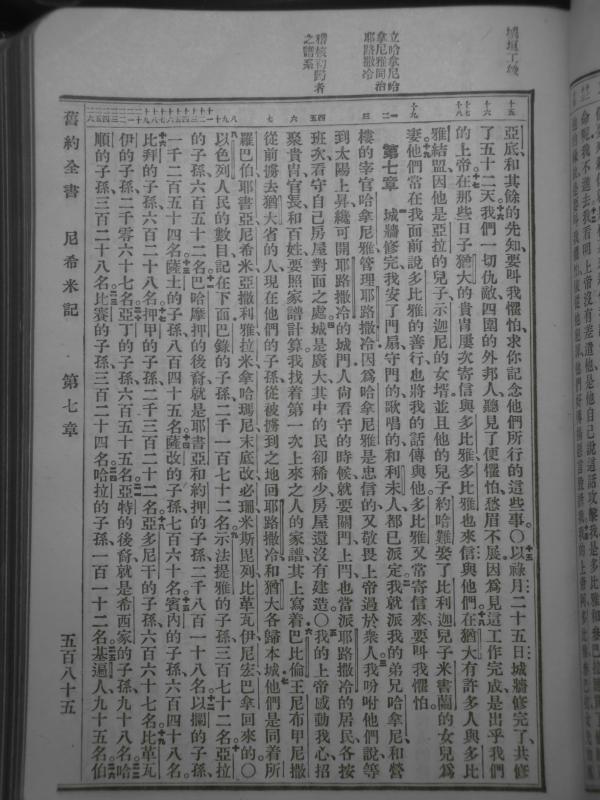 城垣工竣
立哈拿尼哈
拿尼雅同治
耶路撒冷
稽核初歸者
之譜系
亞底和其餘的先知要叫我懼怕求你記念他們所行的這些事〇以祿月二十五日城牆修完了共修
了五十二天我們一切仇敵四圍的外邦人聽見了便懼怕愁眉不展因爲見這工作完成是出乎我們
的上帝在那些日子猶大的貴冑屢次寄信與多比雅多比雅也來信與他們在猶大有許多人與多比
雅結盟因他是亞拉的兒子示迦尼的女壻並且他的兒子約哈難娶了比利迦兒子米書蘭的女兒爲
妻他們常在我面前說多比雅的善行也將我的話傳與他多比雅又常寄信來要叫我懼怕
第七章 城牆修完我安了門扇守門的歌唱的和利未人都已派定我就派我的弟兄哈拿尼和營
樓的宰官哈拿尼雅管理耶路撒冷因爲哈拿尼雅是忠信的又敬畏上帝過於衆人我吩咐他們說等
到太陽上昇纔可開耶路撒冷的城門人尙看守的時候就要關門上閂也當派耶路撒冷的居民各按
班次看守自己房屋對面之處城是廣大其中的民卻稀少房屋還沒有建造〇我的上帝感動我心招
聚貴冑官長和百姓要照家譜計算我找着第一次上來之人的家譜其上寫着巴比倫王尼布甲尼撒
從前擄去猶大省的人現在他們的子孫從被擄到之地回耶路撒冷和猶大各歸本城他們是同着所
羅巴伯耶書亞尼希米亞撒利雅拉米拿哈瑪尼末底改必珊米斯毘列比革瓦伊尼宏巴拿回來的〇
以色列人民的數目記在下面巴錄的子孫二千一百七十二名示法提雅的子孫三百七十二名亞拉
的子孫六百五十二名巴哈摩押的後裔就是耶書亞和約押的子孫二千八百一十八名以攔的子孫
一千二百五十四名薩土的子孫八百四十五名薩改的子孫七百六十名賓內的子孫六百四十八名
比拜的子孫六百二十八名押甲的子孫二千三百二十二名亞多尼干的子孫六百六十七名比革瓦
伊的子孫二千零六十七名亞丁的子孫六百五十五名亞特的後裔就是希西家的子孫九十八名哈
順的子孫三百二十八名比賽的子孫三百二十四名哈拉的子孫一百一十二名基遍人九十五名伯
舊約全書 尼希米記 第七章 五百八十五